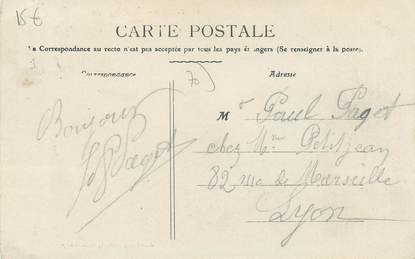 15€
CARTE POSTALE
La Correspondance au recto n'est pas acceptée par tous les pays étrangers (Se renseigner à la poste).
Correspondance
70
Adresse
Bonjour
Paget
Mr Paul Paget
chez Mme Petitjean
82 rue de Marseille
Lyon